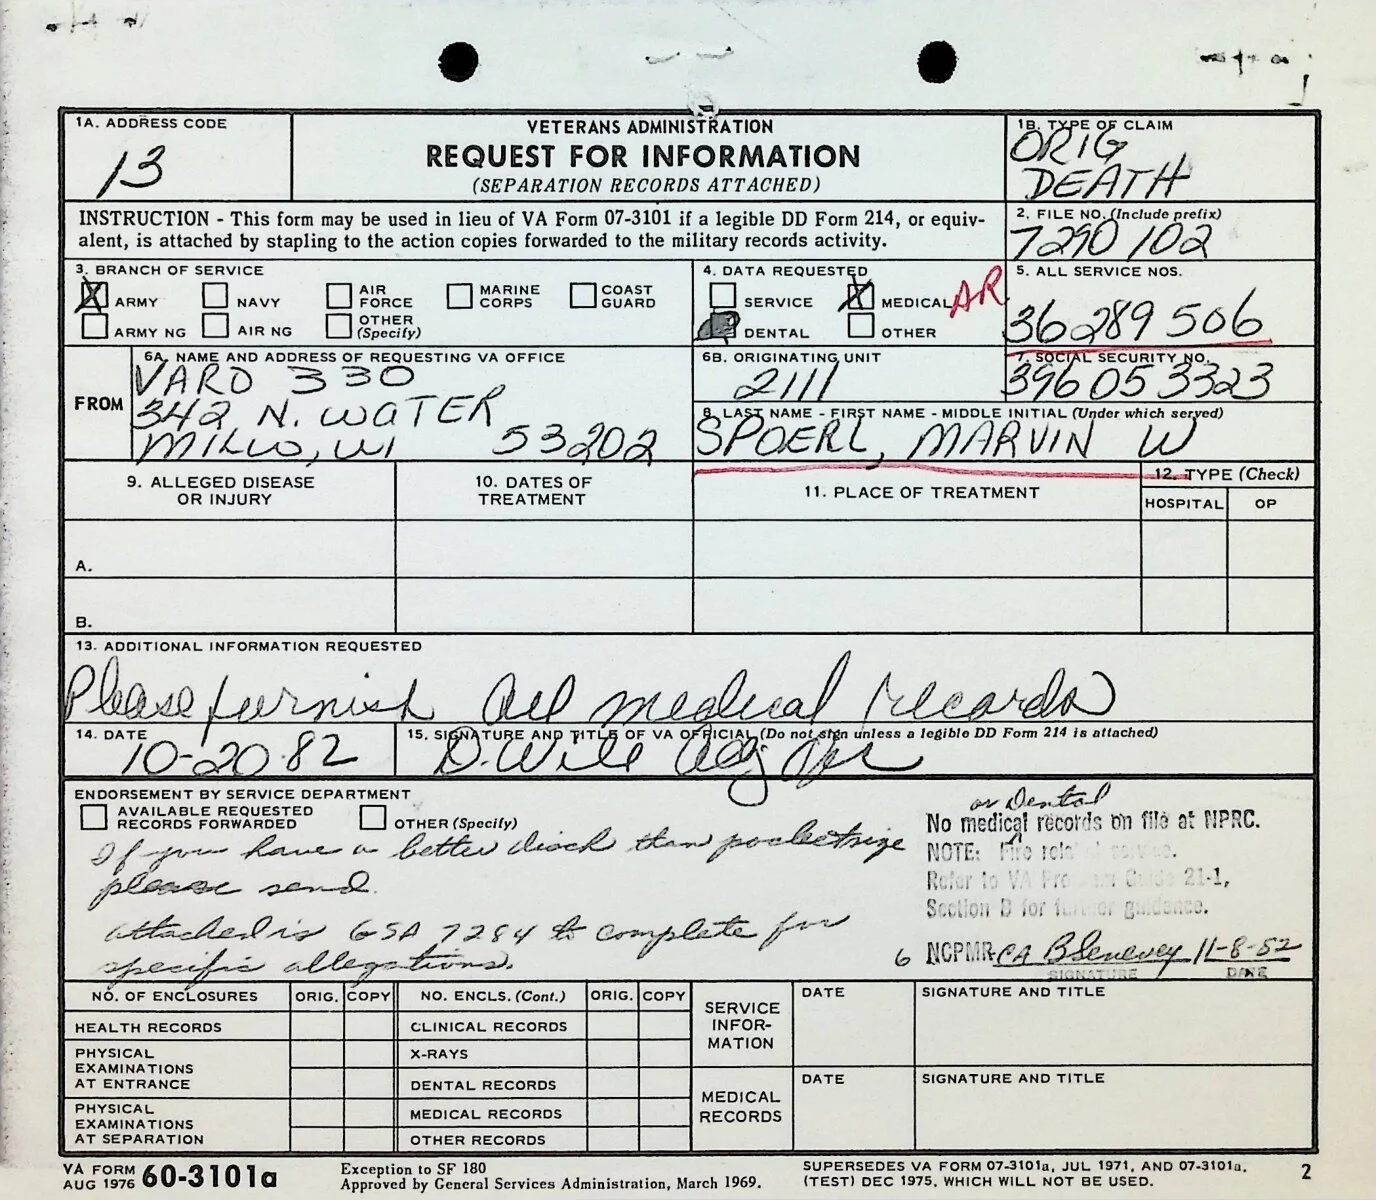 1A. ADDRESS CODE
13
VETERANS ADMINISTRATION
REQUEST FOR INFORMATION
(SEPARATION RECORDS ATTACHED)
1B. TYPE OF CLAIM
ORIG
DEATH
INSTRUCTION - This form may be used in lieu of VA Form 07-3101 if a legible DD Form 214, or equiv-
alent, is attached by stapling to the action copies forwarded to the military records activity.
2. FILE NO. (Include prefix)
7290 102
3. BRANCH OF SERVICE
X ARMY
NAVY
AIR FORCE
MARINE CORPS
COAST GUARD
ARMY NG
AIR NG
OTHER (Specify)
4. DATA REQUESTED
SERVICE
X MEDICAL AR
DENTAL
OTHER
5. ALL SERVICE NOS.
36 289 506
FROM
6A. NAME AND ADDRESS OF REQUESTING VA OFFICE
VARO 330
342 N. WATER
MILW, WI 53202
6B. ORIGINATING UNIT
2111
7. SOCIAL SECURITY NO.
396 05 3323
8. LAST NAME - FIRST NAME - MIDDLE INITIAL (Under which served)
SPOERL, MARVIN W
9. ALLEGED DISEASE
OR INJURY
10. DATES OF
TREATMENT
11. PLACE OF TREATMENT
12. TYPE (Check)
HOSPITAL OP
A.
B.
13. ADDITIONAL INFORMATION REQUESTED
Please furnish all medical records
14. DATE
10-20-82
15. SIGNATURE AND TITLE OF VA OFFICIAL (Do not sign unless a legible DD Form 214 is attached)
D. Wile Adj
ENDORSEMENT BY SERVICE DEPARTMENT
AVAILABLE REQUESTED
RECORDS FORWARDED
OTHER (Specify)
If you have a better disch than pocketsize
please send.
attached is GSA 7284 to complete for
specific allegations.
or Dental
No medical records on file at NPRC.
NOTE: Fire related service.
Refer to VA Program Guide 21-1,
Section D for further guidance.
6 NCPMR-CA B Senevey 11-8-82
SIGNATURE DATE
NO. OF ENCLOSURES ORIG. COPY
NO. ENCLS. (Cont.) ORIG. COPY
HEALTH RECORDS
PHYSICAL
EXAMINATIONS
AT ENTRANCE
PHYSICAL
EXAMINATIONS
AT SEPARATION
CLINICAL RECORDS
X-RAYS
DENTAL RECORDS
MEDICAL RECORDS
OTHER RECORDS
SERVICE
INFOR-
MATION
DATE
SIGNATURE AND TITLE
MEDICAL
RECORDS
DATE
SIGNATURE AND TITLE
VA FORM
AUG 1976 60-3101a
Exception to SF 180
Approved by General Services Administration, March 1969.
SUPERSEDES VA FORM 07-3101a, JUL 1971, AND 07-3101a,
(TEST) DEC 1975, WHICH WILL NOT BE USED.
2